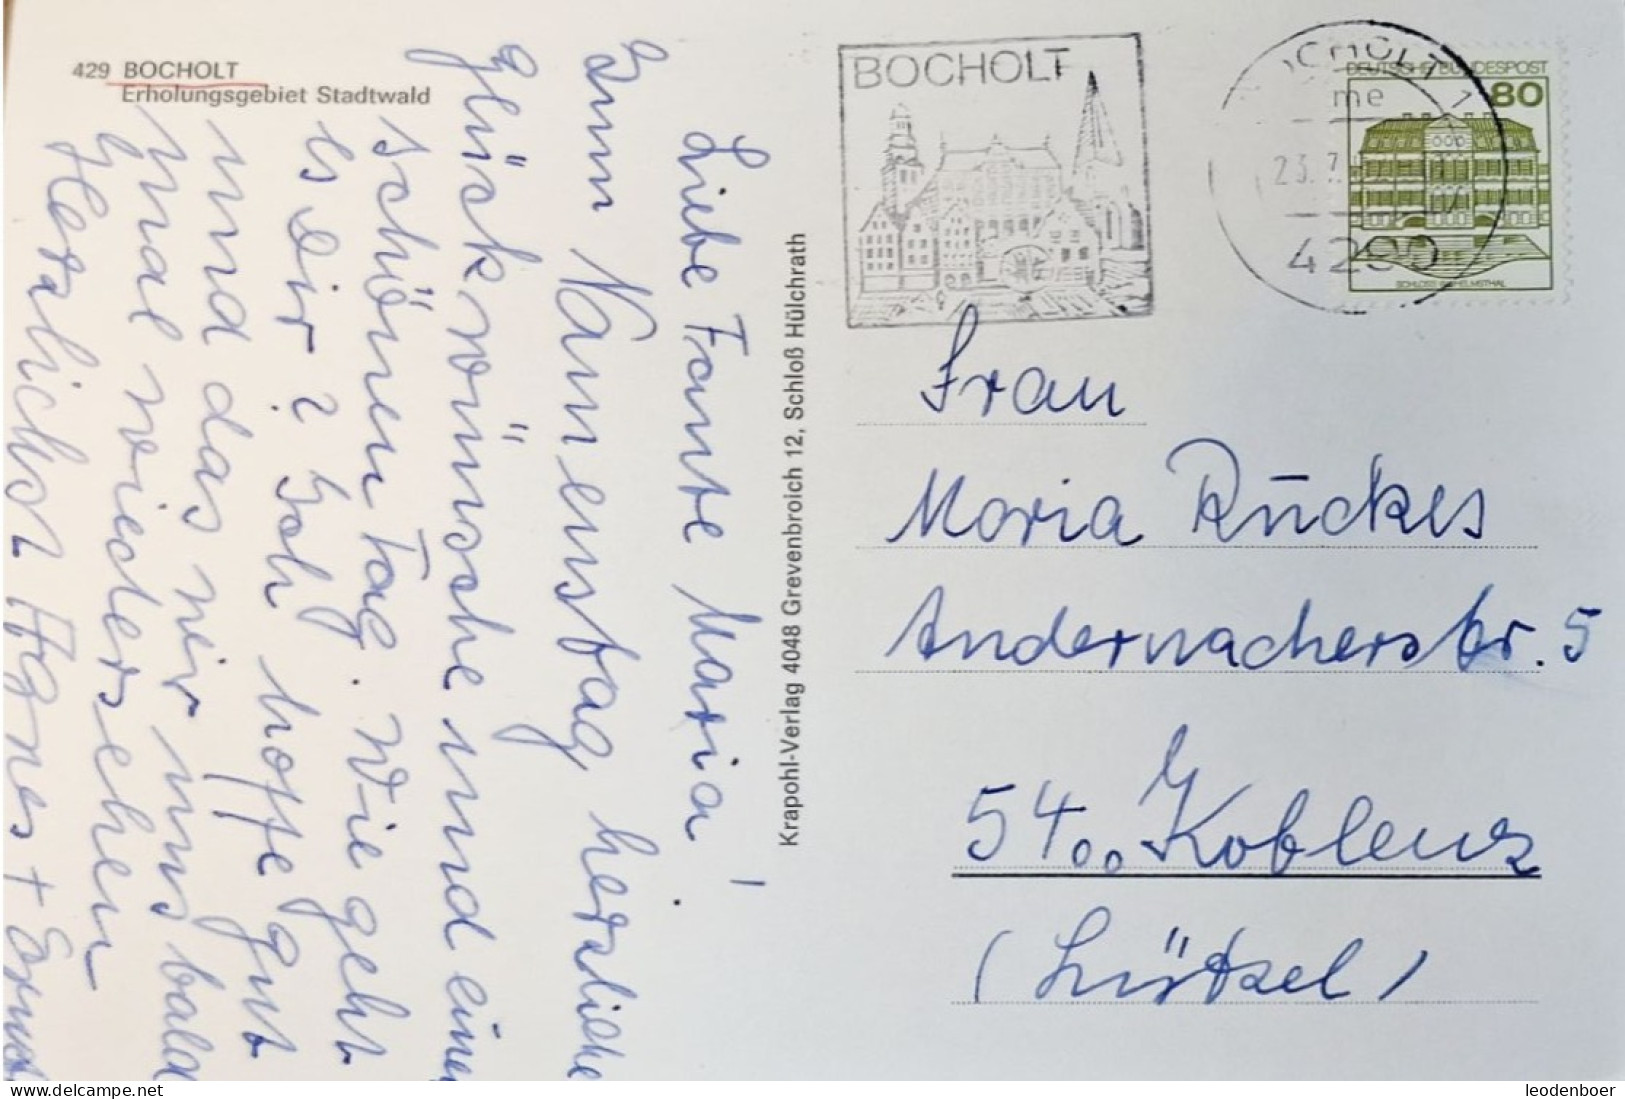 429 BOCHOLT
Erholungsgebiet Stadtwald
Liebe Tante Maria!
Zum Namenstag herzliche
Glückwünsche und einen
schönen Tag. Wie geht
es Dir? Ich hoffe gut
und das wir uns bald
mal wiedersehen
Herzlichst Agnes +
Krapohl-Verlag 4048 Grevenbroich 12, Schloß Hülchrath
BOCHOLT
BOCHOLT 1
me
23.7.
4290
DEUTSCHE BUNDESPOST
80
SCHLOSS WILHELMSTHAL
Frau
Maria Rückes
Andernacherstr. 5
5400 Koblenz
(Lützel)
leodenboer